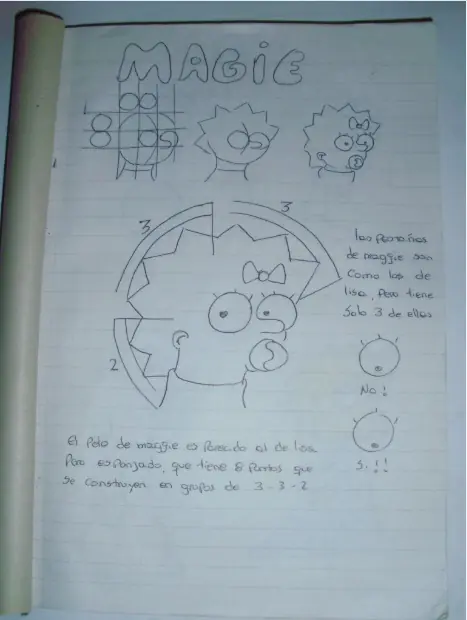 MAGIE
3
3
2
las pestañas
de maggie son
como las de
lisa, pero tiene
solo 3 de ellas
No!
Si!!
El Pelo de maggie es Parecido al de lisa
Pero esponjado, que tiene 8 Puntas que
se construyen en grupos de 3-3-2